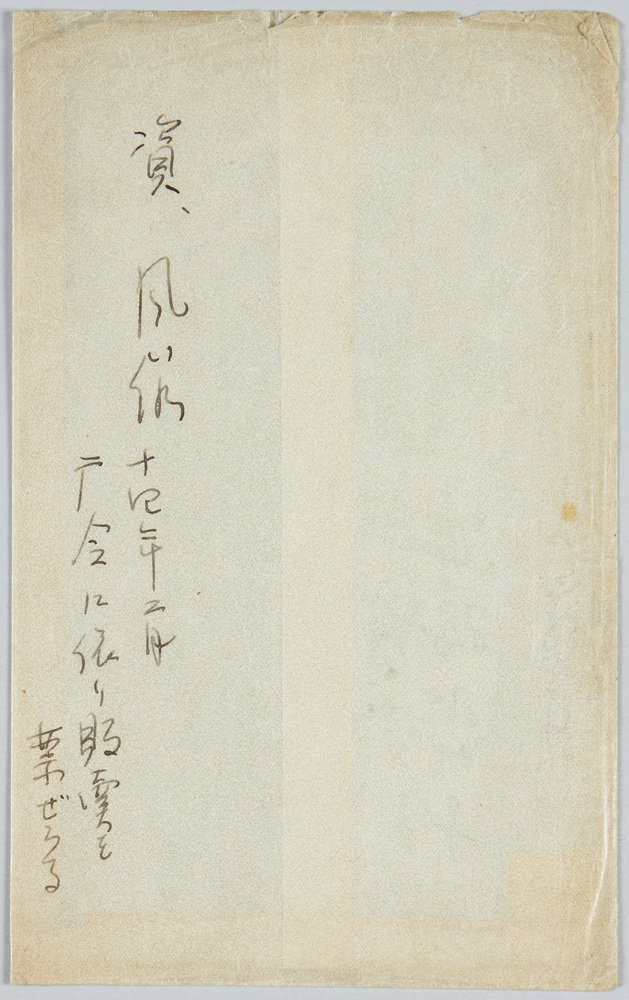 資、風俗 十四年二月
庁令に依り販賣を
禁ぜらる